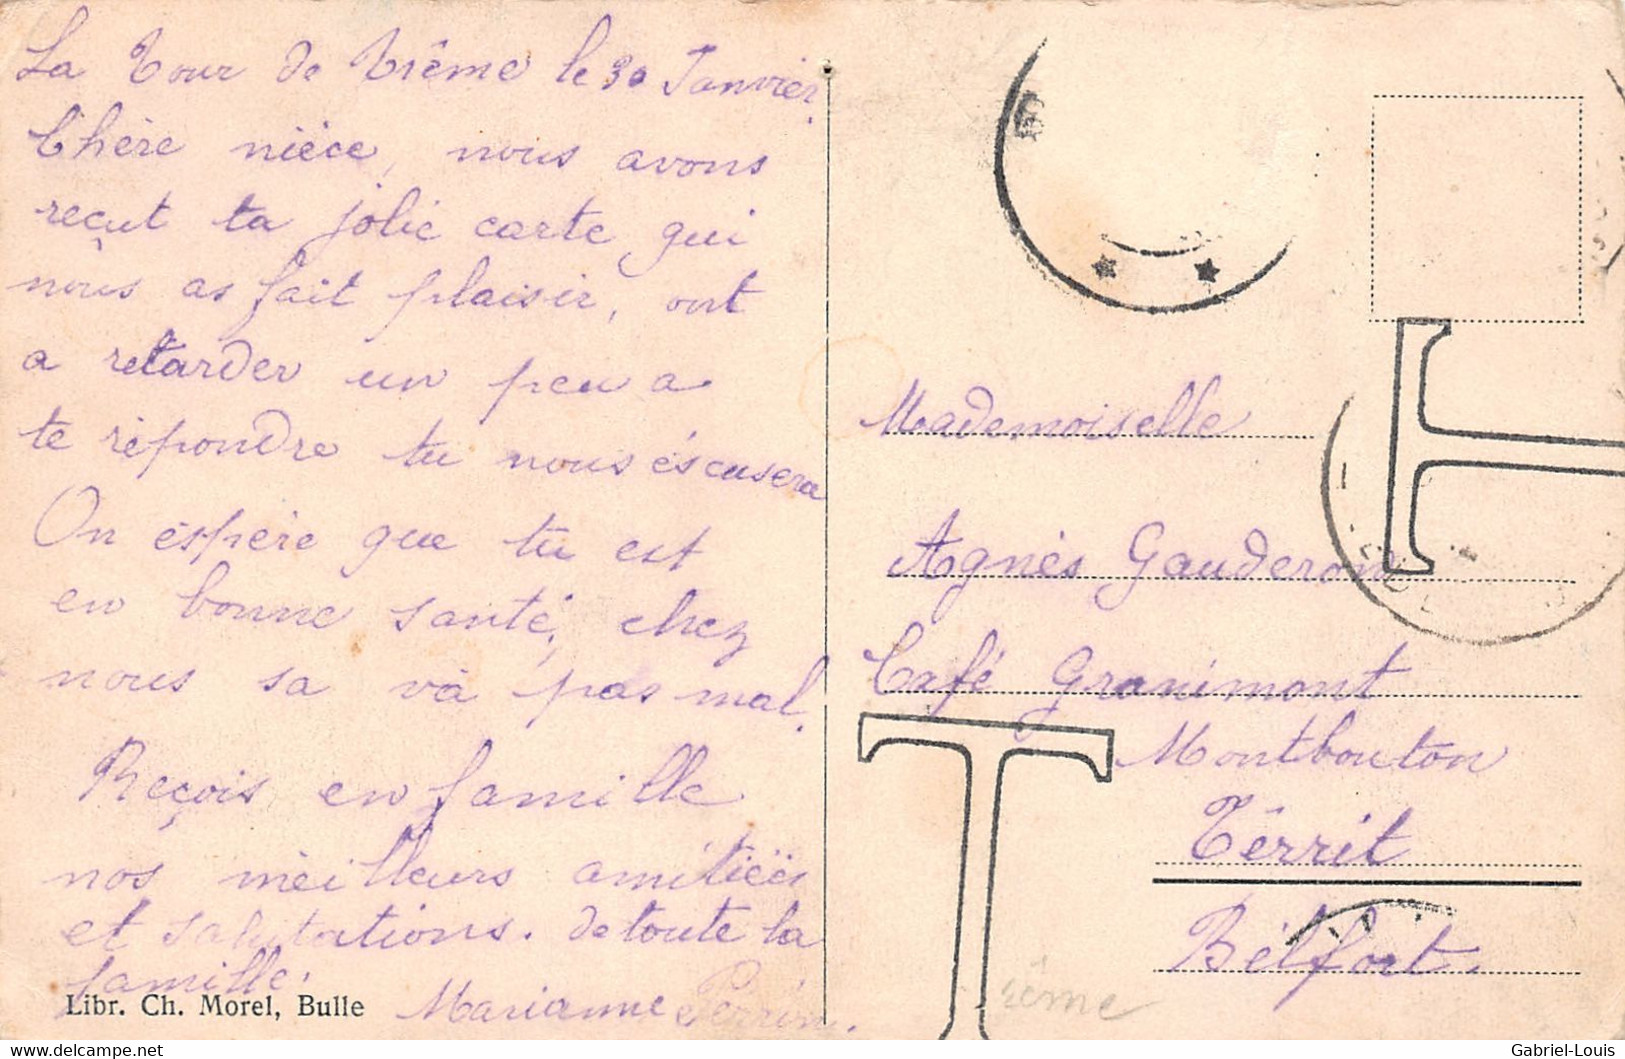 La Tour de Trême le 30 Janvier
Chère nièce, nous avons
reçut ta jolie carte qui
nous as fait plaisir, ont
a retarder un peu a
te répondre tu nous éscusera
On éspère que tu est
en bonne santé, chez
nous sa va pas mal.
Reçois en famille
nos meilleurs amitiés
et salutations. de toute la
famille.
Marianne Perrin.
Libr. Ch. Morel, Bulle
Mademoiselle
Agnès Gauderon
Café Granimont
Montbouton
Térrit
Bélfort.
T
T
delcampe.net
Gabriel-Louis